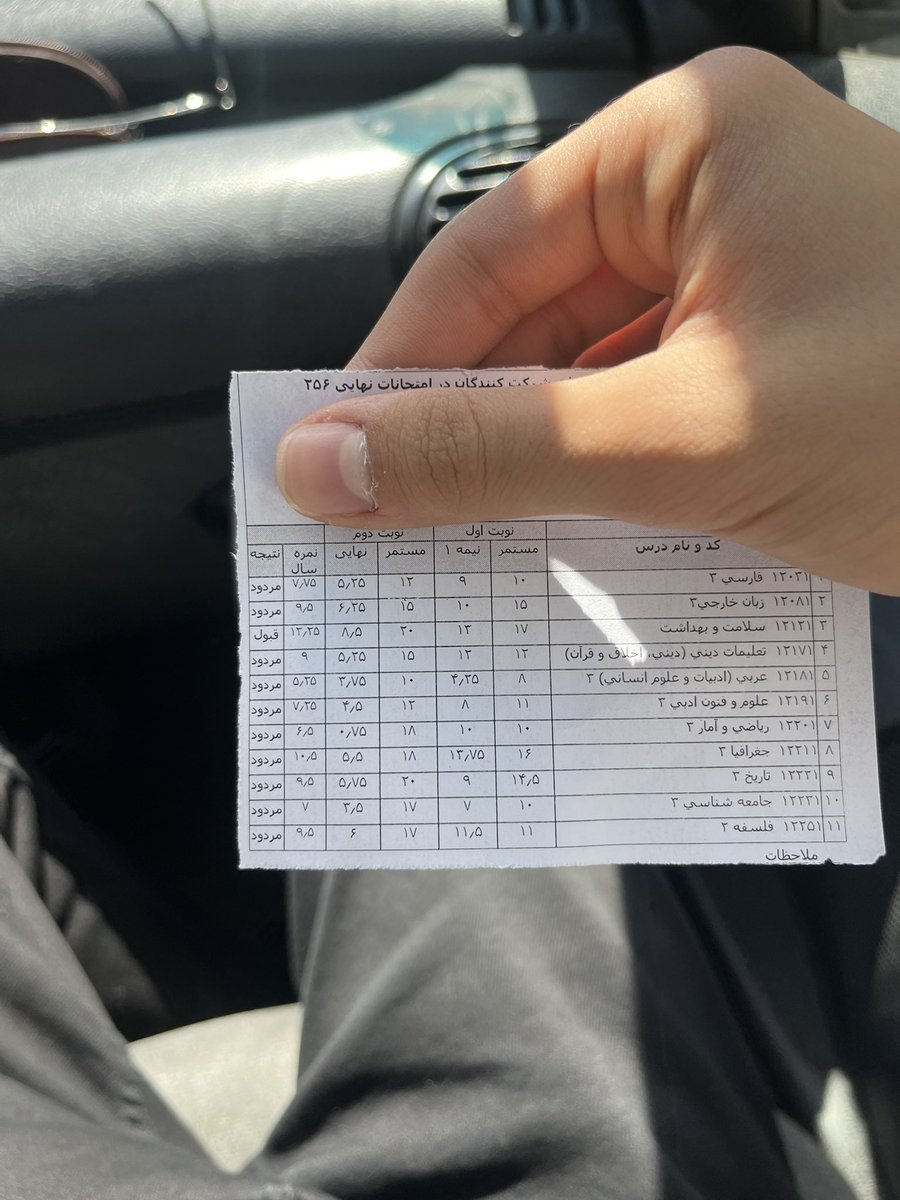 شرکت کنندگان در امتحانات نهایی ۲۵۶
کد و نام درس نوبت اول نوبت دوم نمره سال نتیجه
مستمر نیمه ۱ مستمر نهایی
۱ ۱۲۰۳۱ فارسي ۳ ۱۰ ۹ ۱۲ ۵٫۲۵ ۷٫۷۵ مردود
۲ ۱۲۰۸۱ زبان خارجي۳ ۱۵ ۱۰ ۱۵ ۶٫۲۵ ۹٫۵ مردود
۳ ۱۲۱۲۱ سلامت و بهداشت ۱۷ ۱۳ ۲۰ ۸٫۵ ۱۲٫۲۵ قبول
۴ ۱۲۱۷۱ تعليمات ديني (ديني، اخلاق و قرآن) ۱۲ ۱۲ ۱۵ ۵٫۲۵ ۹ مردود
۵ ۱۲۱۸۱ عربي (ادبيات و علوم انساني) ۳ ۸ ۴٫۲۵ ۱۰ ۳٫۷۵ ۵٫۲۵ مردود
۶ ۱۲۱۹۱ علوم و فنون ادبي ۳ ۱۱ ۸ ۱۲ ۴٫۵ ۷٫۲۵ مردود
۷ ۱۲۲۰۱ رياضي و آمار ۳ ۱۰ ۱۰ ۱۸ ۰٫۷۵ ۶٫۵ مردود
۸ ۱۲۲۱۱ جغرافيا ۳ ۱۶ ۱۳٫۷۵ ۱۸ ۵٫۵ ۱۰٫۵ مردود
۹ ۱۲۲۲۱ تاريخ ۳ ۱۴٫۵ ۹ ۲۰ ۵٫۷۵ ۹٫۵ مردود
۱۰ ۱۲۲۳۱ جامعه شناسي ۳ ۱۰ ۷ ۱۷ ۳٫۵ ۷ مردود
۱۱ ۱۲۲۵۱ فلسفه ۲ ۱۱ ۱۱٫۵ ۱۷ ۶ ۹٫۵ مردود
ملاحظات